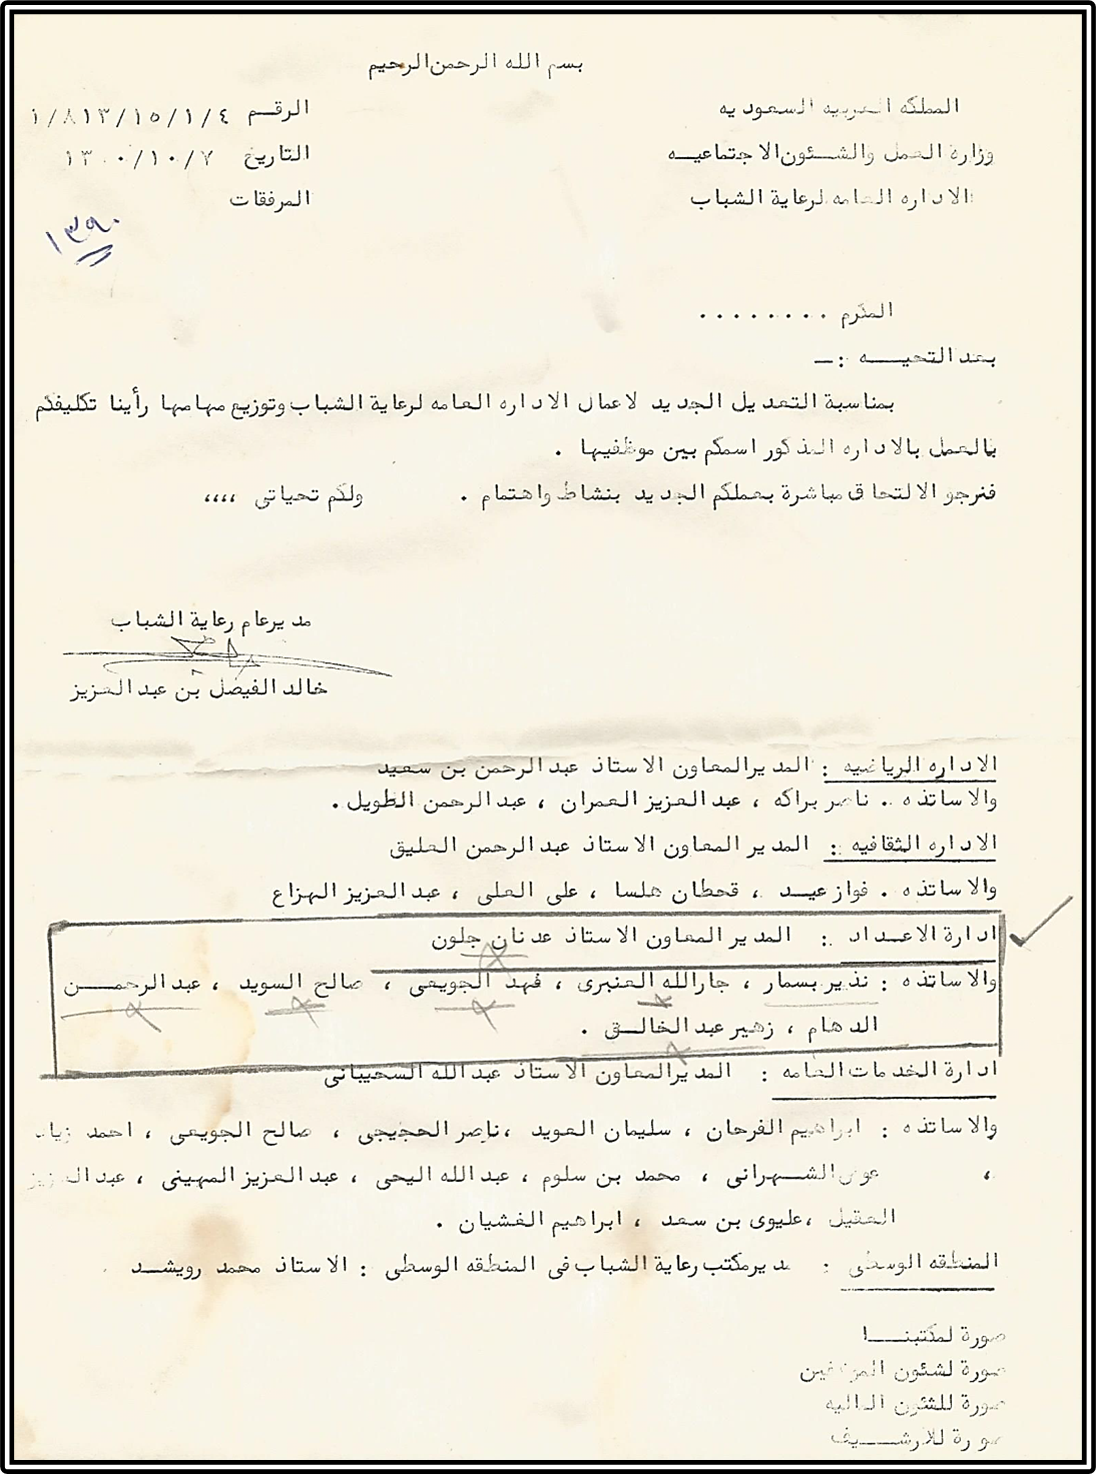 بسم الله الرحمن الرحيم
المملكه العربيه السعوديه
الرقم ١/٨١٣/١٥/١/٤
وزارة العمل والشئون الاجتماعيه
التاريخ ٧/١٠/
الاداره العامه لرعاية الشباب
المرفقات
١٣٩٠
المكرم ........
بعد التحيه :ـ
بمناسبة التعديل الجديد لاعمال الاداره العامه لرعاية الشباب وتوزيع مهامها رأينا تكليفكم
بالعمل بالاداره المذكور اسمكم بين موظفيها .
فنرجو الالتحاق مباشرة بعملكم الجديد بنشاط واهتمام . ولكم تحياتى ،،،،
مدير عام رعاية الشباب
خالد الفيصل بن عبد العزيز
الاداره الرياضيه : المدير المعاون الاستاذ عبد الرحمن بن سعيد
والاساتذه .. ناصر براكه ، عبد العزيز العمران ، عبد الرحمن الطويل .
الاداره الثقافيه : المدير المعاون الاستاذ عبد الرحمن العليق
والاساتذه . فواز عيد ، قحطان هلسا ، على العلى ، عبد العزيز الهزاع
ادارة الاعداد : المدير المعاون الاستاذ عدنان جلون
والاساتذه : نذير بسمار ، جارالله العنبرى ، فهد الجويعى ، صالح السويد ، عبد الرحمن
الدهام ، زهير عبد الخالق .
ادارة الخدمات العامه : المدير المعاون الاستاذ عبد الله السحيبانى
والاساتذه : ابراهيم الفرحان ، سليمان العويد ، ناصر الحجيجى ، صالح الجويعى ، احمد
، عوض الشهرانى ، محمد بن سلوم ، عبد الله اليحى ، عبد العزيز المهينى ، عبد العزيز
العقيل ، عليوى بن سعد ، ابراهيم الغشيان .
المنطقه الوسطى : مدير مكتب رعاية الشباب فى المنطقه الوسطى : الاستاذ محمد رويشد
صورة لمكتبنا
صورة لشئون الموظفين
صورة للشئون الماليه
صورة للارشيف